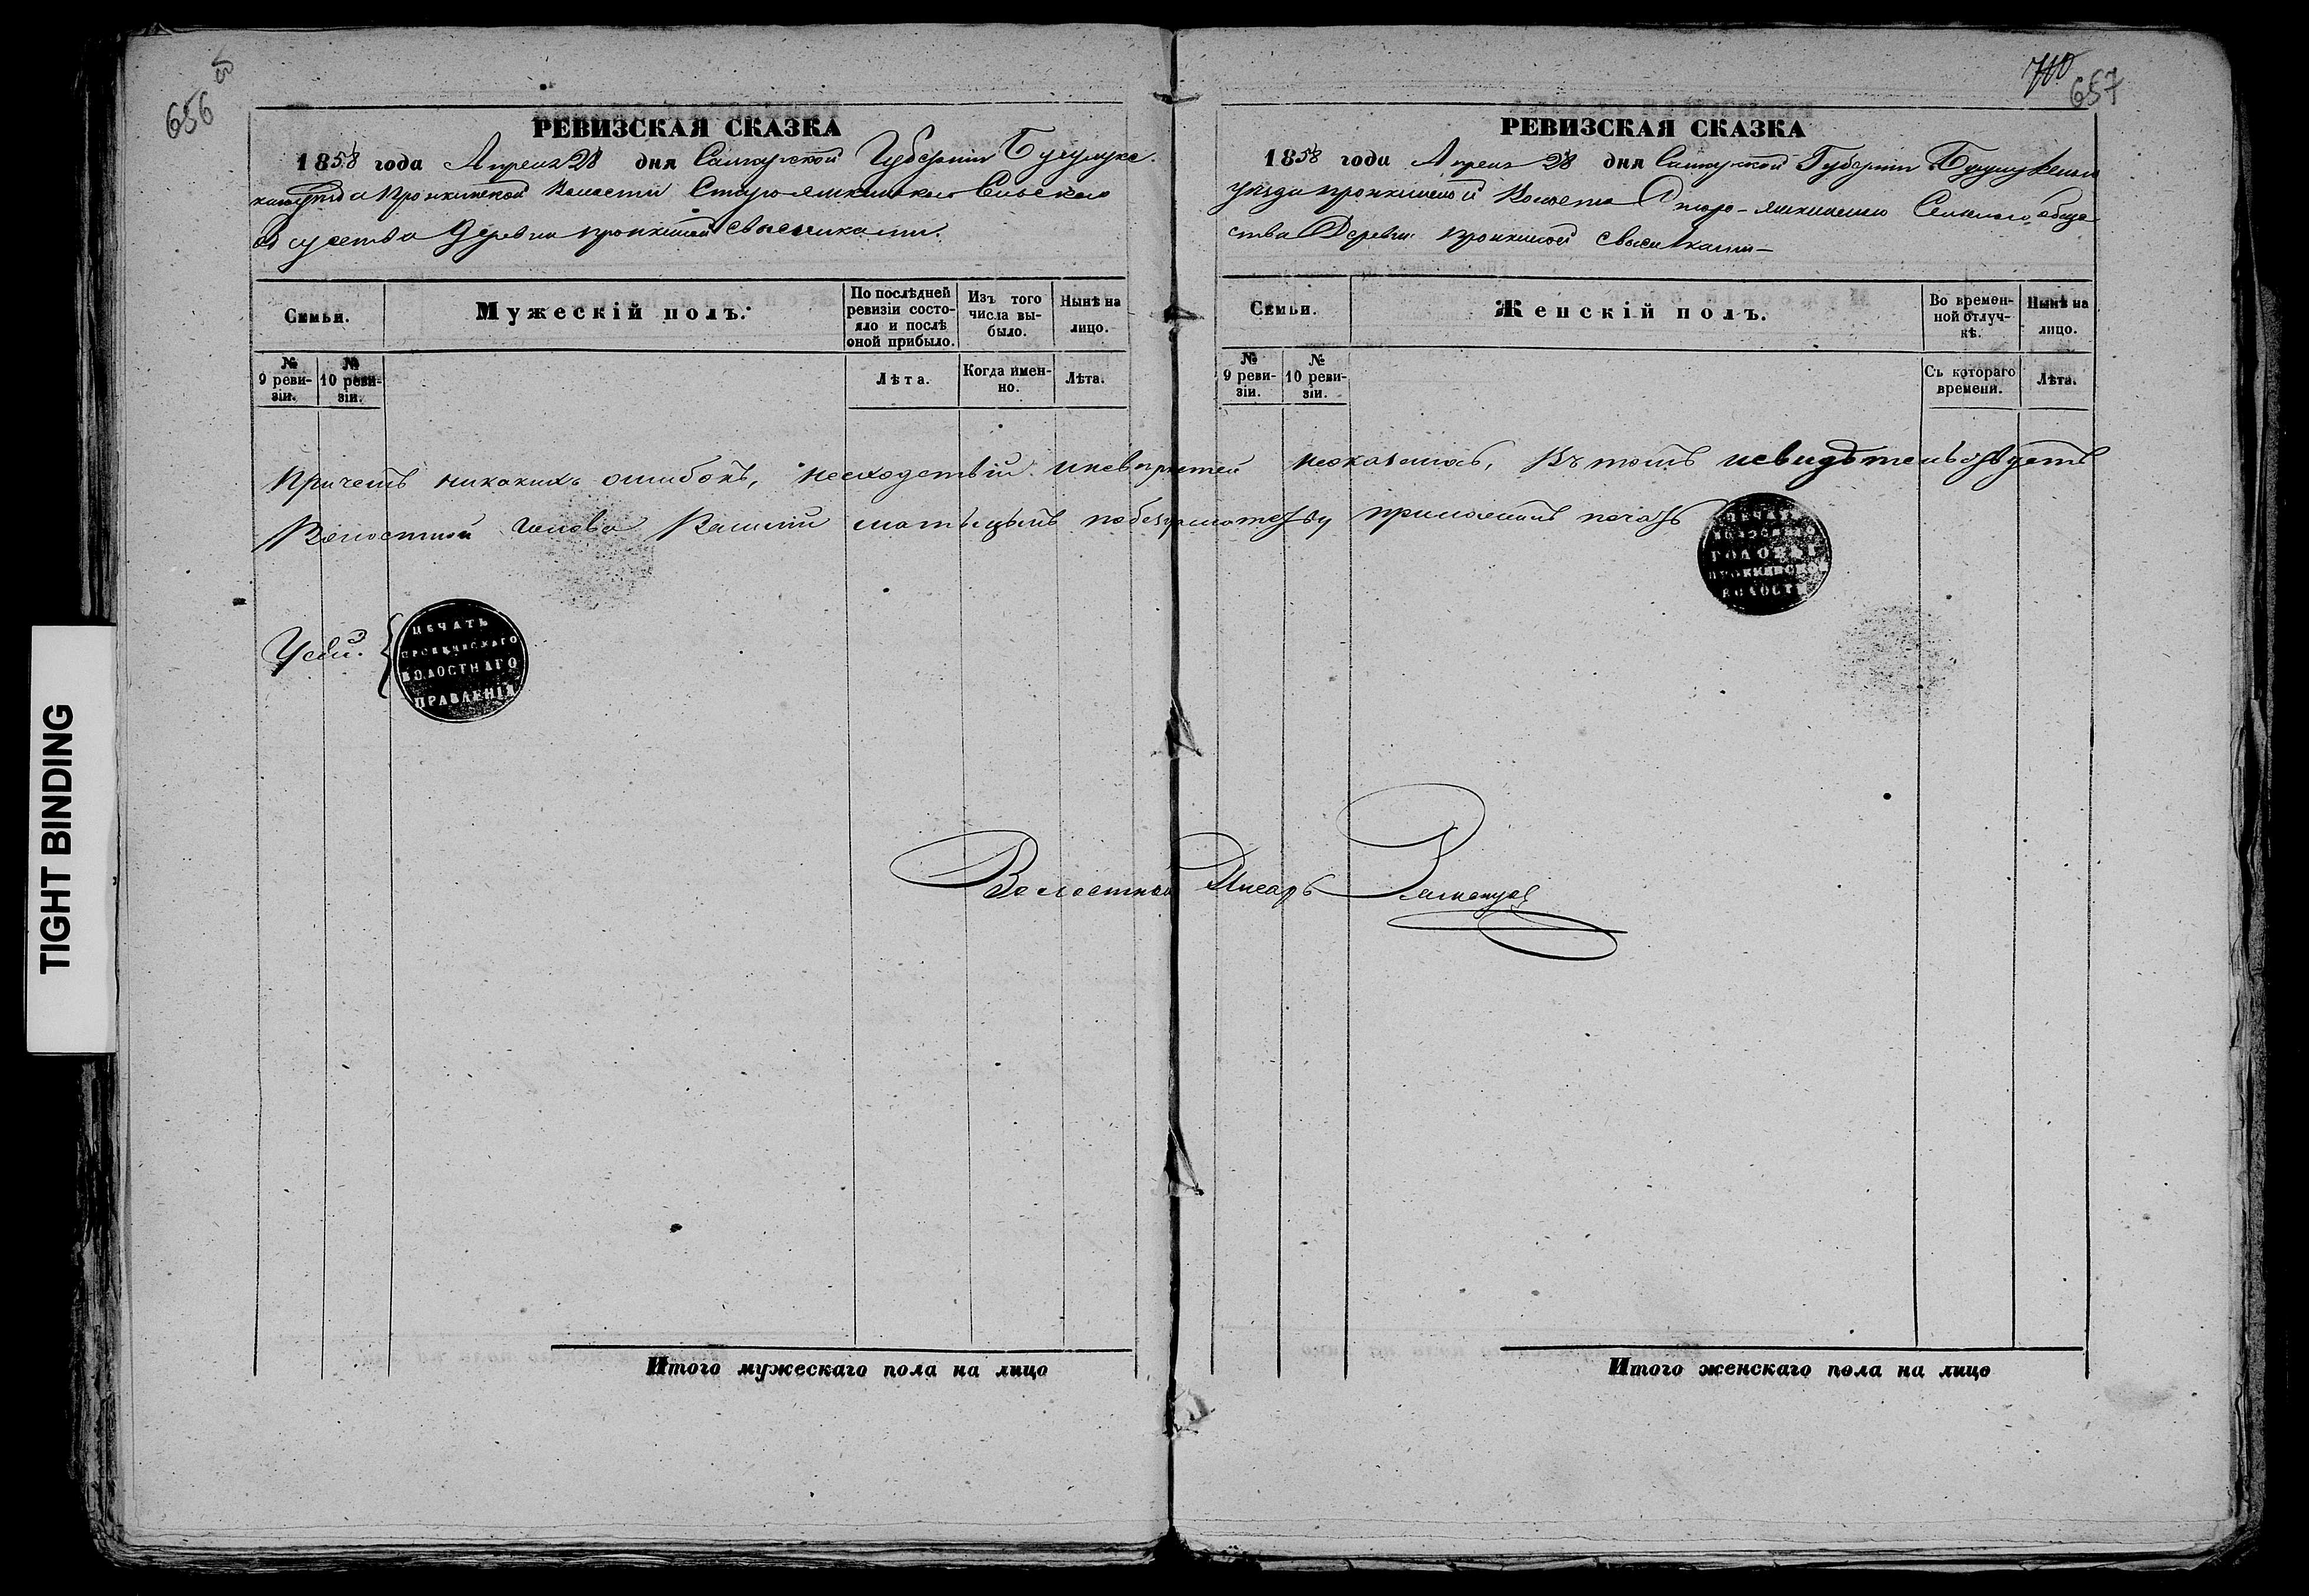 656 об
РЕВИЗСКАЯ СКАЗКА
1858 года Апреля 28 дня Самарской Губерніи Бузулукс
каго уезда Пронкинской Волости Старо Яшкинскаго Сельскаго
Общества Деревни Пронкиной свыселками.
Семьи.
Мужескій полъ.
По послѣдней ревизіи состояло и послѣ оной прибыло.
Изъ того числа выбыло.
Нынѣ на лицо.
№ 9 ревизіи.
№ 10 ревизіи.
Лѣта.
Когда именно.
Лѣта.
Причемъ никакихъ ошибокъ, несходствій
Волостной Голова
по безграмотству
Усей.
ПЕЧАТЬ
ПРОНКИНСКАГО
ВОЛОСТНАГО
ПРАВЛЕНІЯ
Волостной
Итого мужескаго пола на лицо
700
657
РЕВИЗСКАЯ СКАЗКА
1858 года Апреля 28 дня Самарской Губерніи Бузулускаго
уезда пронкинской Волости Старо-яшкинскаго Сельскаго обще
ства Деревни пронкиной свыселками
Семьи.
Женскій полъ.
Во временной отлучкѣ.
Нынѣ на лицо.
№ 9 ревизіи.
№ 10 ревизіи.
Съ котораго времени.
Лѣта.
неоказалось, Въ томъ
приложилъ печать
ПЕЧАТЬ
ВОЛОСТНАГО
ГОЛОВЫ
ПРОНКИНСКОЙ
ВОЛОСТИ
Писарь
Итого женскаго пола на лицо
TIGHT BINDING